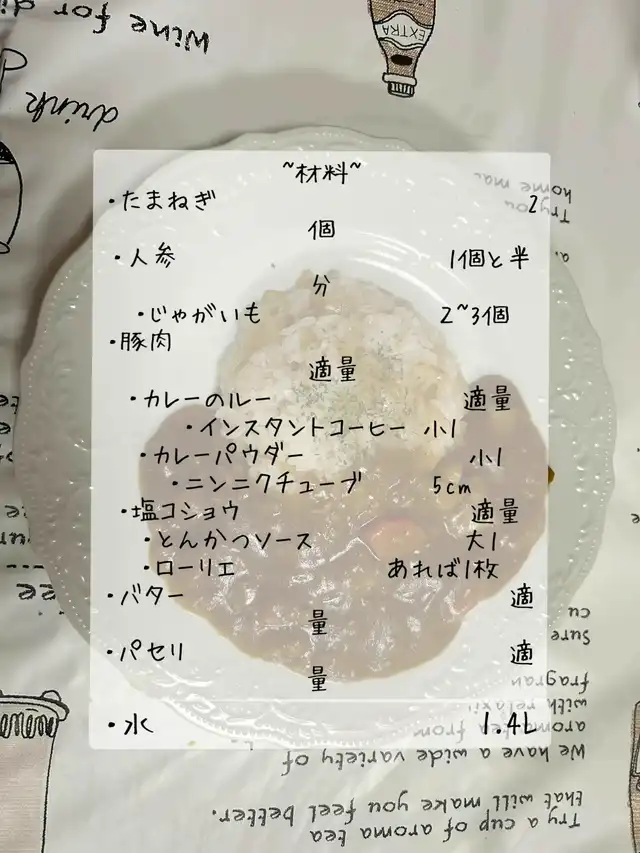 ~材料~
・たまねぎ 2
個
・人参 1個と半
分
・じゃがいも 2~3個
・豚肉
適量
・カレーのルー 適量
・インスタントコーヒー 小1
・カレーパウダー 小1
・ニンニクチューブ 5cm
・塩コショウ 適量
・とんかつソース 大1
・ローリエ あれば1枚
・バター 適
量
・パセリ 適
量
・水 1.4L
wine for di
drink
EXTRA
home ma
Try
cu
Sure
fragran
with relaxi
aroma tea from
We have a wide variety of
that will make you feel better.
Try a cup of aroma tea